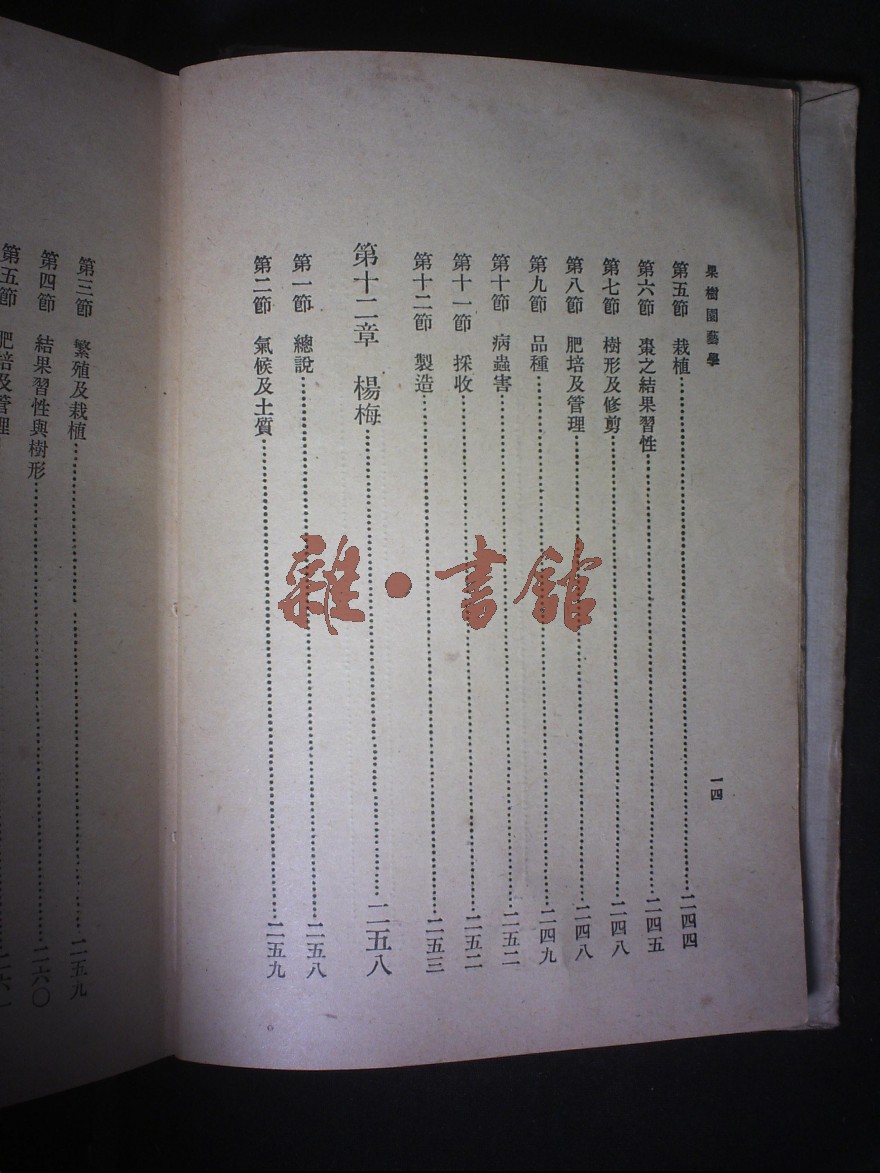 果樹園藝學
一四
第五節 栽植……二四四
第六節 棗之結果習性……二四五
第七節 樹形及修剪……二四八
第八節 肥培及管理……二四八
第九節 品種……二四九
第十節 病蟲害……二五二
第十一節 採收……二五二
第十二節 製造……二五三
第十二章 楊梅……二五八
第一節 總說……二五八
第二節 氣候及土質……二五九
第三節 繁殖及栽植……二五九
第四節 結果習性與樹形……二六〇
第五節 肥培及管理……二六一
雜·書館